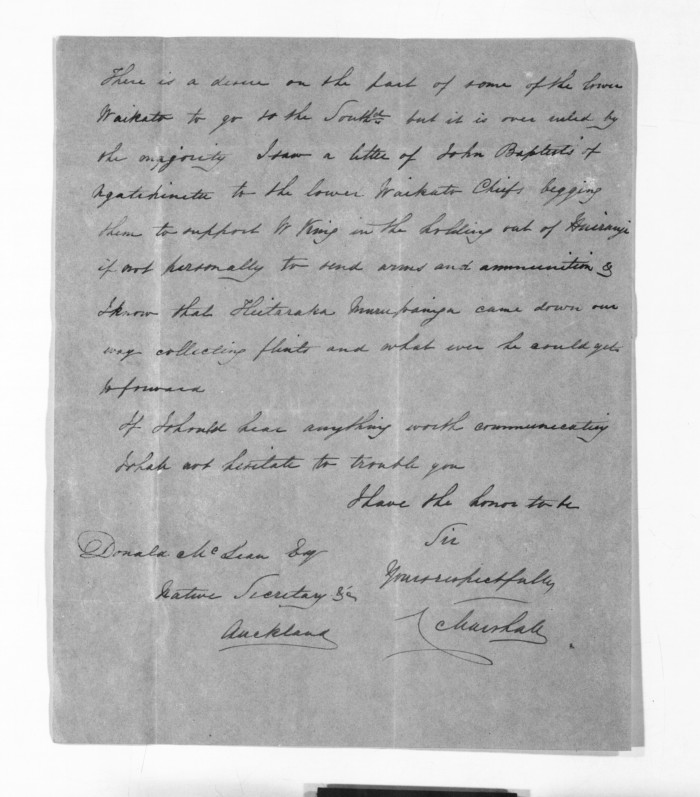 There is a desire on the part of some of the lower
Waikato to go to the South but it is over ruled by
the majority I saw a letter of John Baptist's of
to the lower Waikato Chiefs begging
them to support W King in the holding out of
if not personally to send arms and ammunition &
I know that came down our
way collecting flints and what ever he could get
to forward
If I should hear anything worth communicating
I shall not hesitate to trouble you
I have the honor to be
Sir
Yours respectfully
Marshall
Donald McLean Esq
Native Secretary &c
Auckland